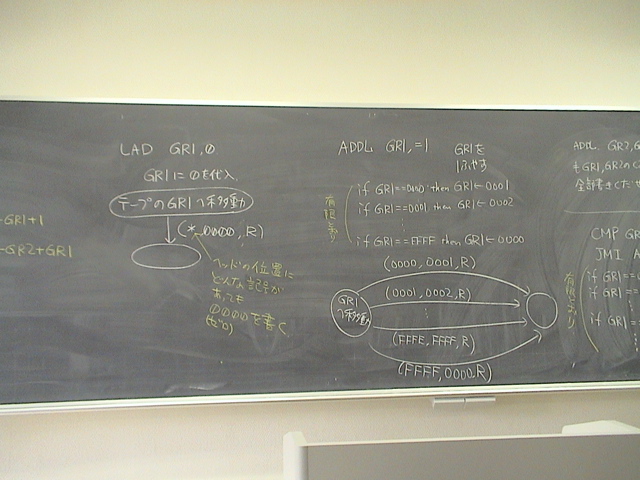 GR1+1
GR2+GR1
LAD GR1,0
GR1に0を代入
テープのGR1へ移動
(*,0000,R)
ヘッドの位置に
どんな記号が
あっても
0000を書く
(ゼロ)
ADDL GR1,=1
GR1を
1ふやす
有限とおり
if GR1==0000 then GR1←0001
if GR1==0001 then GR1←0002
⋮
if GR1==FFFF then GR1←0000
(0000,0001,R)
(0001,0002,R)
⋮
(FFFE,FFFF,R)
(FFFF,0000,R)
GR1
へ移動
ADDL GR2,G
もGR1,GR2の
全部書きくだ
CMP GR
JMI
有限とおり
if GR1==
if GR1==
⋮
if GR1==